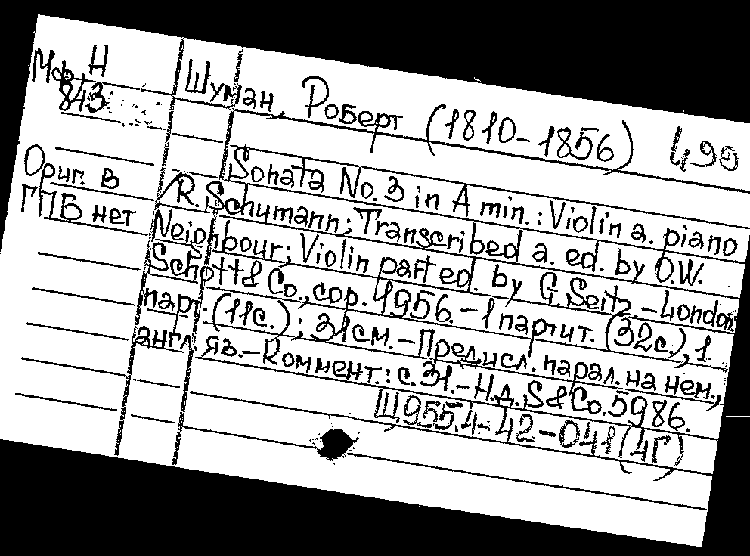 Мф Н
843
Шуман, Роберт (1810-1856) 490
Ориг. в
ГПБ нет
Sonata No.3 in A min.: Violin a. piano
/R. Schumann; Transcribed a. ed. by O.W.
Neighbour; Violin part ed. by G. Seitz.-London:
Schott & Co., cop. 1956.-1 партит. (32с.), 1
парт. (11с.); 31см.-Предисл. парал. на нем.,
англ. яз.-Коммент.: с.31.-Н.д. S&Co.5986.
Ш955.4-42-041(4Г)